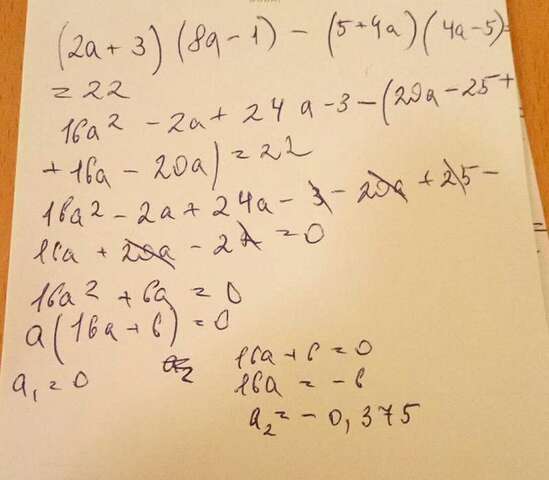 (2a + 3) (8a - 1) - (5 + 4a) (4a - 5) =
= 22
16a² - 2a + 24a - 3 - (20a - 25 +
+ 16a - 20a) = 22
16a² - 2a + 24a - 3 - 20a + 25 -
16a + 20a - 22 = 0
16a² + 6a = 0
a(16a + 6) = 0
a₁ = 0
16a + 6 = 0
16a = -6
a₂ = -0,375